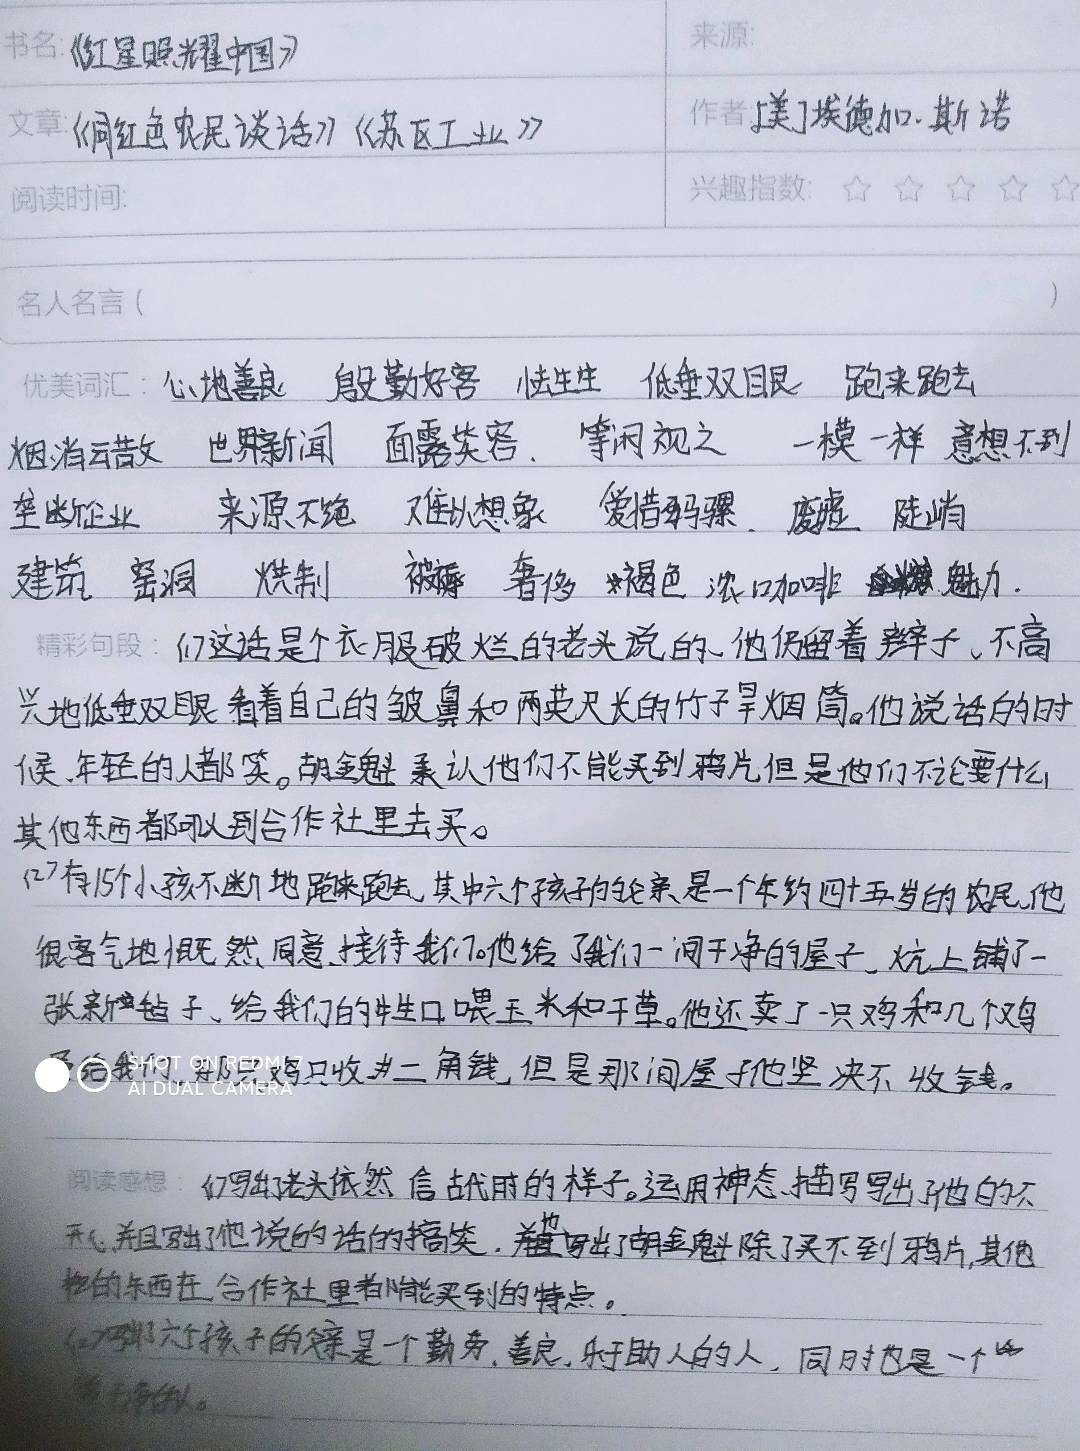 书名:《红星照耀中国》
来源:
文章:《同红色农民谈话》《苏区工业》
作者:[美]埃德加·斯诺
阅读时间:
兴趣指数: ☆ ☆ ☆ ☆ ☆
名人名言 ( )
优美词汇: 心地善良 殷勤好客 怯生生 低垂双眼 跑来跑去
烟消云散 世界新闻 面露笑容. 等闲视之 一模一样 意想不到
垄断企业 来源不绝 难以想象 爱惜 骡. 废墟 陡峭
建筑 窑洞 烘制 被褥 奢侈 褐色 浓口咖啡 魅力.
精彩句段: (1)这话是个衣服破烂的老头说的、他仍留着辫子、不高
兴地低垂双眼看着自己的皱鼻和两英尺长的竹子旱烟筒。他说话的时
候、年轻的人都笑。胡金魁承认他们不能买到鸦片,但是他们不论要什么
其他东西都可以到合作社里去买。
(2)有15个小孩不断地跑来跑去,其中六个孩子的父亲是一个年约四十五岁的农民、他
很客气地慨然同意接待我们。他给了我们一间干净的屋子、炕上铺了一
张新毡子、给我们的牲口喂玉米和干草。他还卖了一只鸡和几个鸡
给我们,那只鸡只收 二角钱,但是那间屋子他坚决不收钱。
SHOT ON REDMI 7
AI DUAL CAMERA
阅读感想: (1)写出了老头依然 古代时的样子。运用神态描写写出了他的不
开心,并且写出了他说的话的搞笑.也写出了胡金魁除了买不到鸦片,其他
的东西在合作社里都能买到的特点。
(2) 六个孩子的父亲是一个勤劳,善良,乐于助人的人,同时也是一个